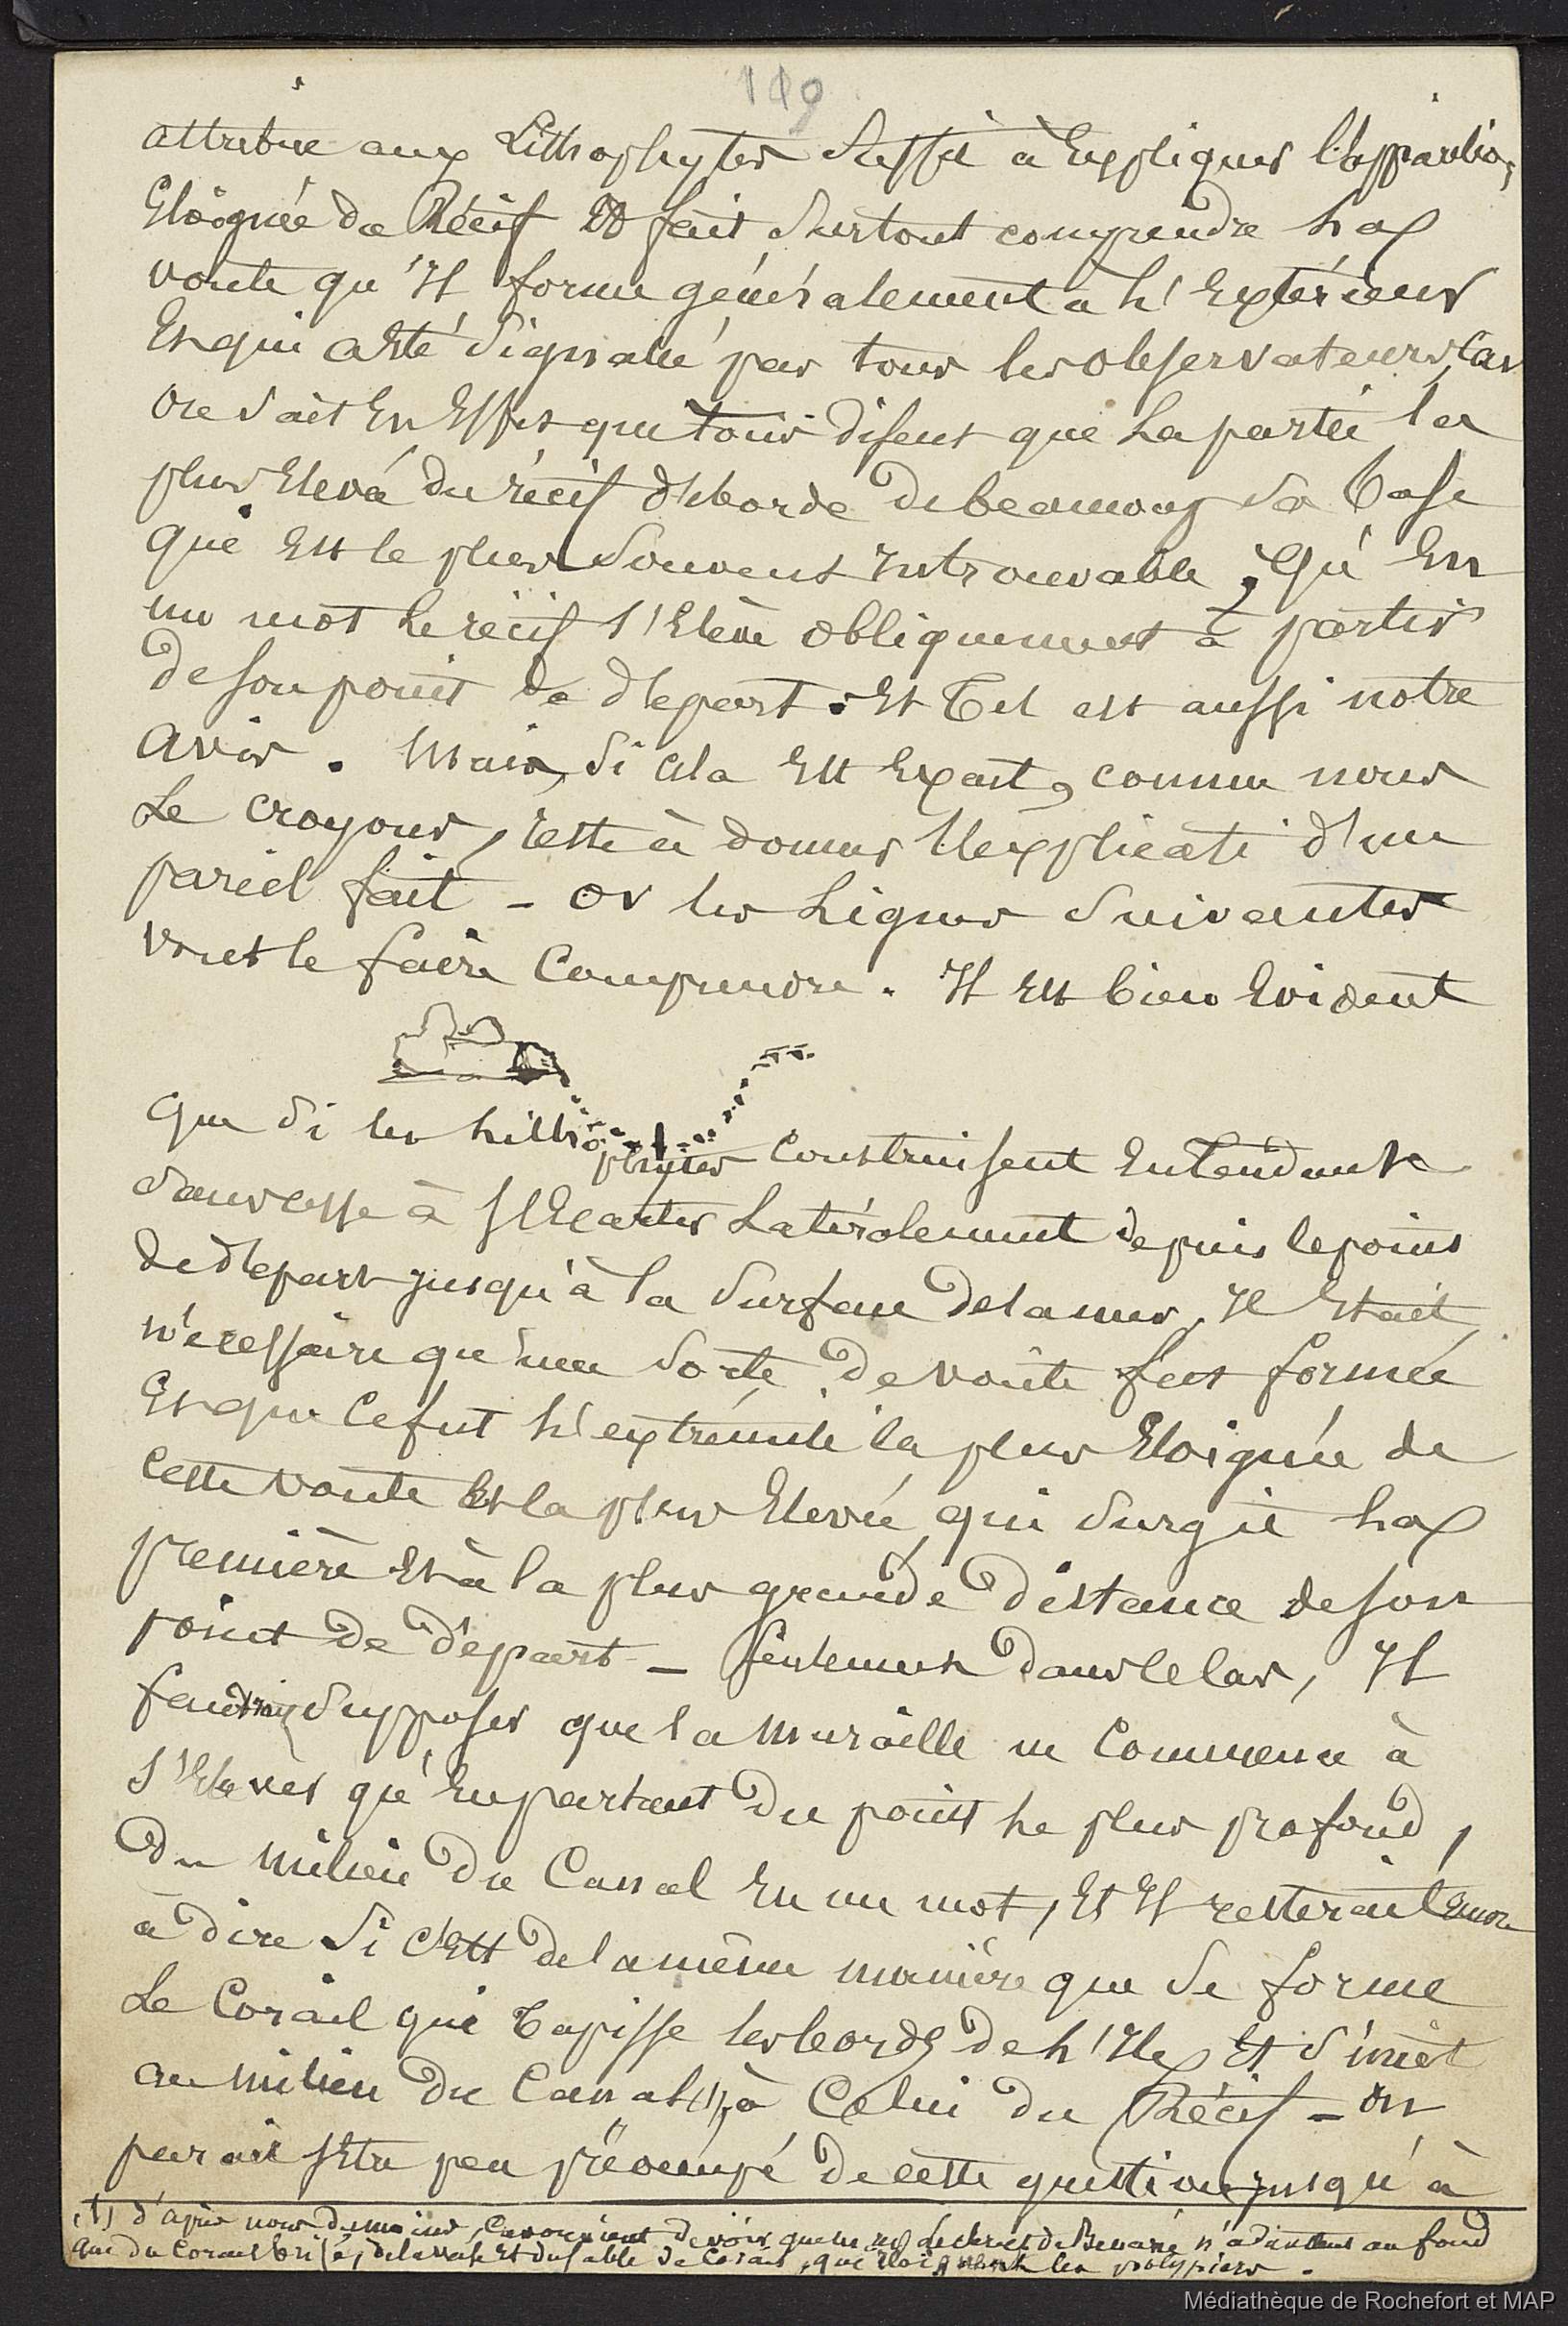 119
attribue aux Lithophytes Suffit à Expliquer l'apparition
Eloignée du Récif Et fait Surtout comprendre La
voute qu'Il forme généralement à L'Extérieur
Et qui a Eté Signalé par tous les observateurs, Car
on Sait En Effet que tous disent que La partie la
plus Elevée du récif déborde de beaucoup Sa base
qui Est le plus Souvent Introuvable, Qu'En
un mot Le récif S'Elève obliquement à partir
de son point de départ. Et Tel est aussi notre
avis. Mais, Si cela Est Exact, comme nous
Le croyons, reste à donner l'explicati d'un
pareil fait - or les Lignes Suivantes
vont le faire Comprendre. Il Est bien Evident
que Si les Litho
phytes Construisent En tendant
Sans cesse à S'Ecarter Latéralement depuis le point
de départ jusqu'à la Surface de la mer, Il Etait
nécessaire qu'une Sorte de voûte fut formée
Et que Ce fut L'extrémité la plus Eloignée de
Cette voute Et la plus Elevée, qui Surgit La
première Et à la plus grande distance de son
point de départ - Seulement dans ce Cas, Il
faudrait Supposer que la Muraille ne Commence à
S'Elever qu'En partant du point Le plus profond,
du Milieu du Canal En un mot, Et Il resterait Encore
à dire Si C'Est de la même manière que Se forme
Le Corail qui Tapisse les bords de L'Ile, Et S'unit
au Milieu du Canal (1), à Celui du Récif - On
parait s'Etre peu préoccupé de cette question jusqu'à
(1) d'après nous du moins, Car on vient de voir que les de Benané n'admettent au fond
que du Corail brisé, de la vase Et du Sable de Corail, qui Eloignent les polypiers.
Médiathèque de Rochefort et MAP